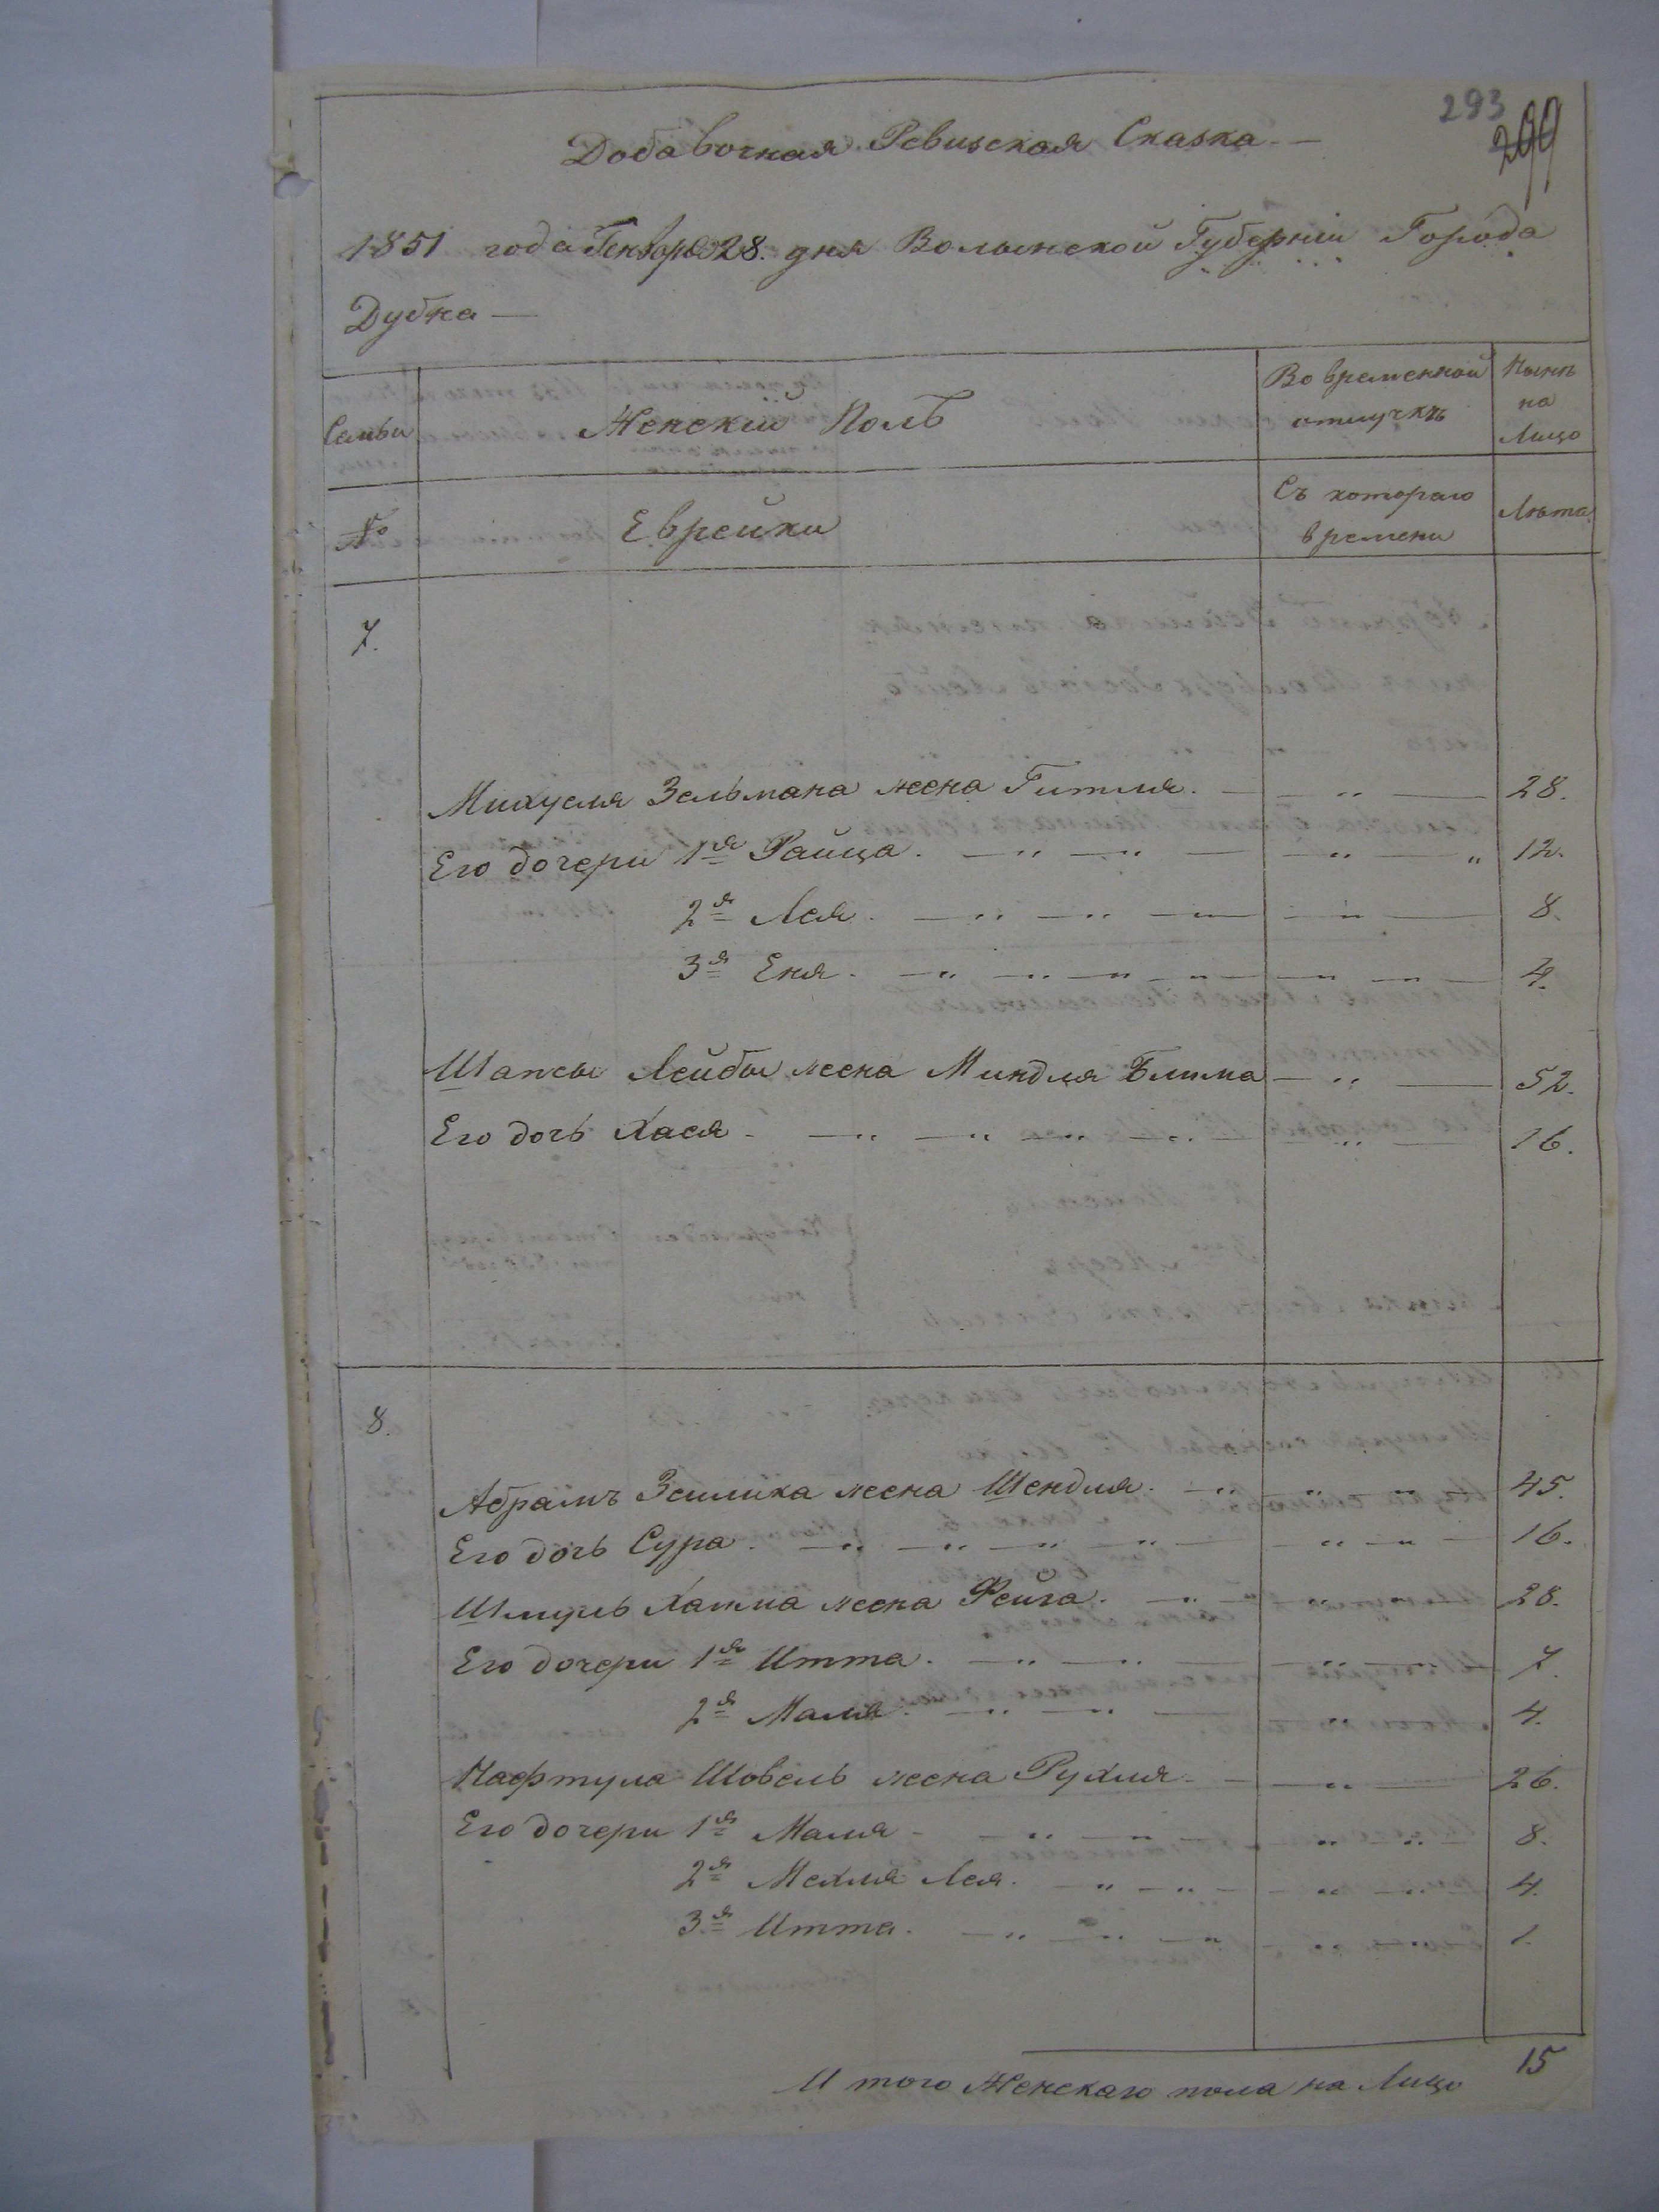 293
299
Добавочная Ревизская Сказка —
1851 года Генваря 28. дня Волынской Губерніи Города
Дубна —
Семьи
Женскій Полъ
Во временной отлучкѣ
Нынѣ на Лицо
№
Еврейки
Съ котораго времени
Лѣта
7.
Михуеля Зельмана жена Гитля. — „ — 28.
Его дочери 1я Райца. — „ — „ — „ — „ 12.
2я Лея. — „ — „ — „ — 8.
3я Еня. — „ — „ — „ — „ — „ — „ — 4.
Шапсы Лейбы жена Миндля Блима — „ — 52.
Его дочь Хася. — „ — „ — „ — „ — „ — 16.
8.
Абрамъ Зейлика жена Шендля. — „ — „ — „ — 45.
Его дочь Сура. — „ — „ — „ — „ — „ — „ — 16.
Шмуль Хаима жена Фейга. — „ — „ — „ — 28.
Его дочери 1я Итта. — „ — „ — „ — 7.
2я Маля. — „ — „ — „ — 4.
Нафтула Шовель жена Рухля — „ — 26.
Его дочери 1я Маля — „ — „ — „ — „ — 8.
2я Мехля Лея. — „ — „ — „ — „ — 4.
3я Итта. — „ — „ — „ — „ — 1.
И того Женскаго пола на Лицо 15